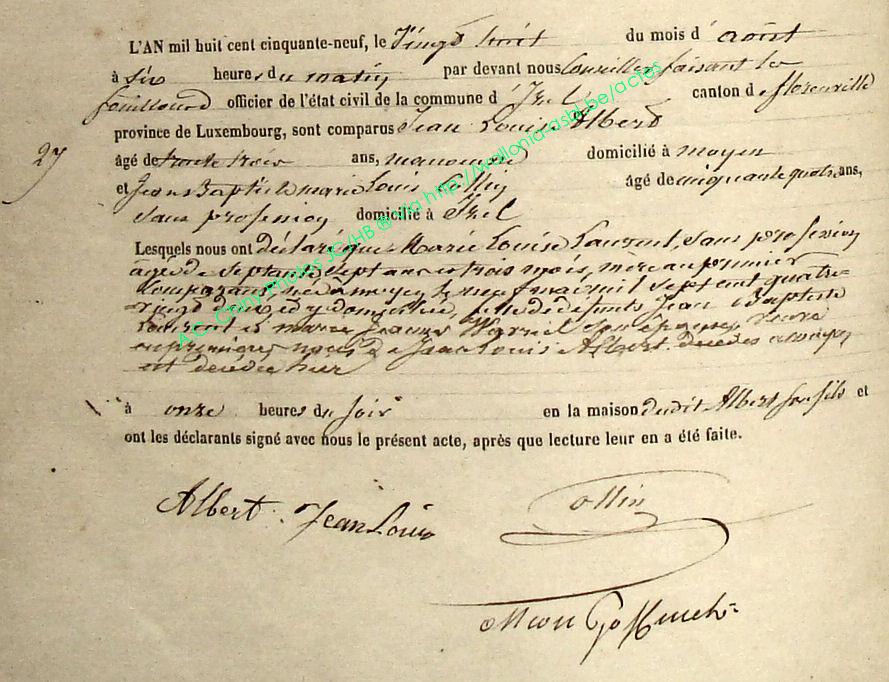 L'AN mil huit cent cinquante-neuf, le Vingt huit du mois d' aoùt
à six heures du matin par devant nous Conseiller faisant les
officier de l'état civil de la commune d' Izel canton de florenville
province de Luxembourg, sont comparus Jean Louis Albert
27
âgé de trente trois ans, manouvrier domicilié à moyen
et Jean Baptiste marie Louis Ollin âgé de cinquante quatre ans,
Sans profession domicilié à Izel
Lesquels nous ont déclaré que Marie Louise Laurent, Sans profession
agée de Septante Sept ans et trois mois, mère au premier
Comparant, née à moyen le mil sept cent quatre-
vingt deux, et y domiciliée, fille de défunts Jean Baptiste
Laurent et marie Jeanne Son épouse, veuve
en premières noces de Jean Louis Albert décédé à moyen
est décédée hier
à onze heures du soir en la maison dudit Albert Son fils et
ont les déclarants signé avec nous le présent acte, après que lecture leur en a été faite.
Albert Jean Louis
Ollin
A.C. Chiny-Photos JC/HB ® via http://wallonia-asbl.be/actes